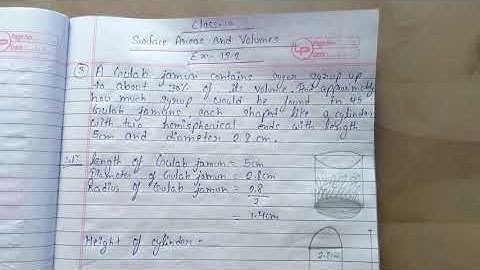 Class-10
Surface Areas and Volumes
Ex- 13.2
③ A Gulab jamun contains sugar syrup up
to about 30% of its volume. Find approximately
how much syrup would be found in 45
Gulab jamuns each shaped like a cylinder
with two hemispherical ends with length
5cm and diameter 2.8cm.
Length of Gulab Jamun = 5cm
Diameter of Gulab jamun = 2.8cm
Radius of Gulab Jamun = 2.8
2
= 1.4cm
Height of cylinder =
2.8cm